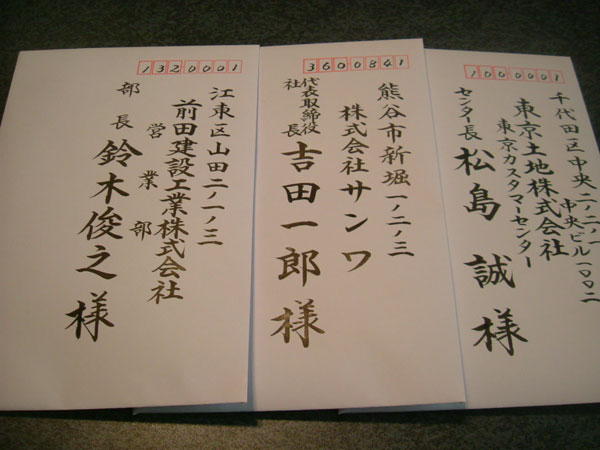 1320001
江東区山田二ノ一ノ三
前田建設工業株式会社
営業部
部長 鈴木俊之様
3600841
熊谷市新堀一ノ二ノ三
株式会社サンワ
代表取締役
社長 吉田一郎様
1000001
千代田区中央二ノ二ノ一
中央ビル一〇〇二
東京土地株式会社
東京カスタマーセンター
センター長 松島誠様